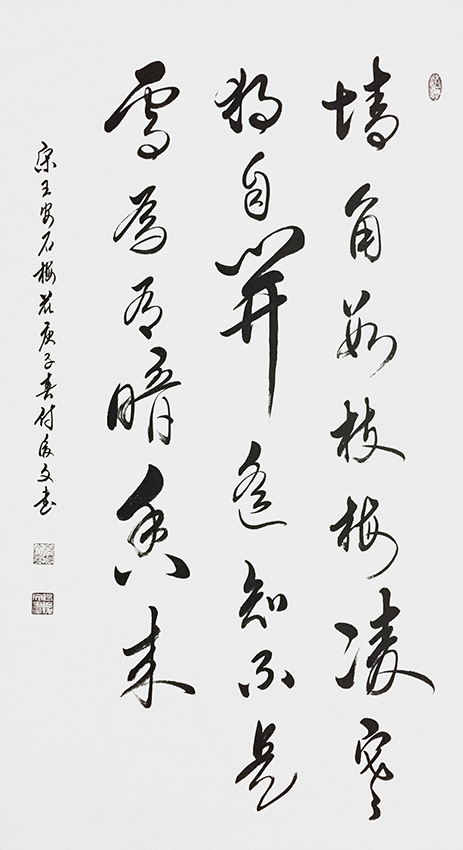 墙角數枝梅凌寒
独自開遥知不是
雪為有暗香来
宋王安石梅花庚子春付文书